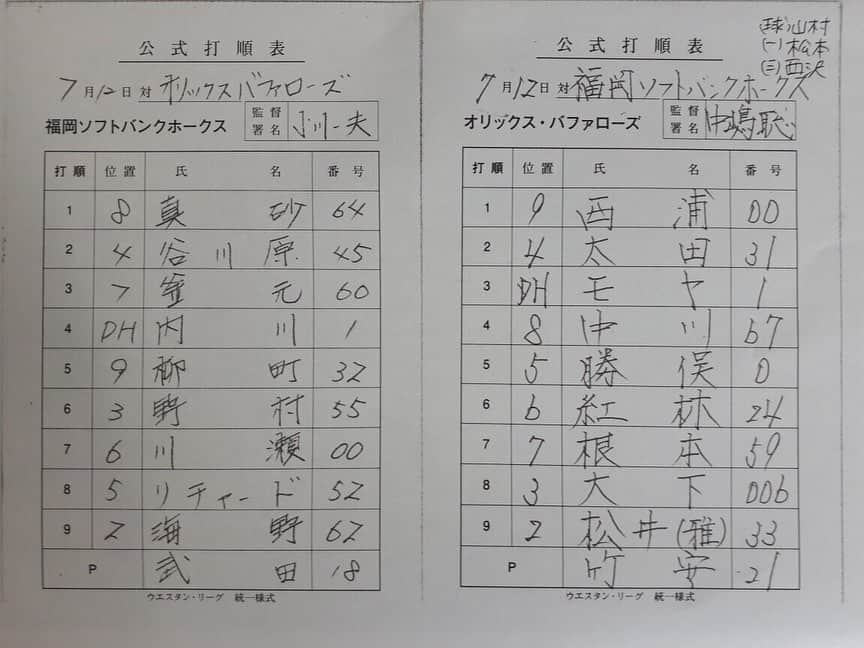 公式打順表
7月12日 対 オリックスバファローズ
福岡ソフトバンクホークス 監督署名 小川一夫
打順 位置 氏名 番号
1 8 真砂 64
2 4 谷川原 45
3 7 釜元 60
4 DH 内川 1
5 9 柳町 32
6 3 野村 55
7 6 川瀬 00
8 5 リチャード 52
9 2 海野 62
P 武田 18
ウエスタン・リーグ 統一様式
(球)山村
(一)松本
(三)西沢
公式打順表
7月12日 対 福岡ソフトバンクホークス
オリックス・バファローズ 監督署名 中嶋聡
打順 位置 氏名 番号
1 9 西浦 00
2 4 太田 31
3 DH モヤ 1
4 8 中川 67
5 5 勝俣 0
6 6 紅林 24
7 7 根本 59
8 3 大下 006
9 2 松井(雅) 33
P 竹安 21
ウエスタン・リーグ 統一様式